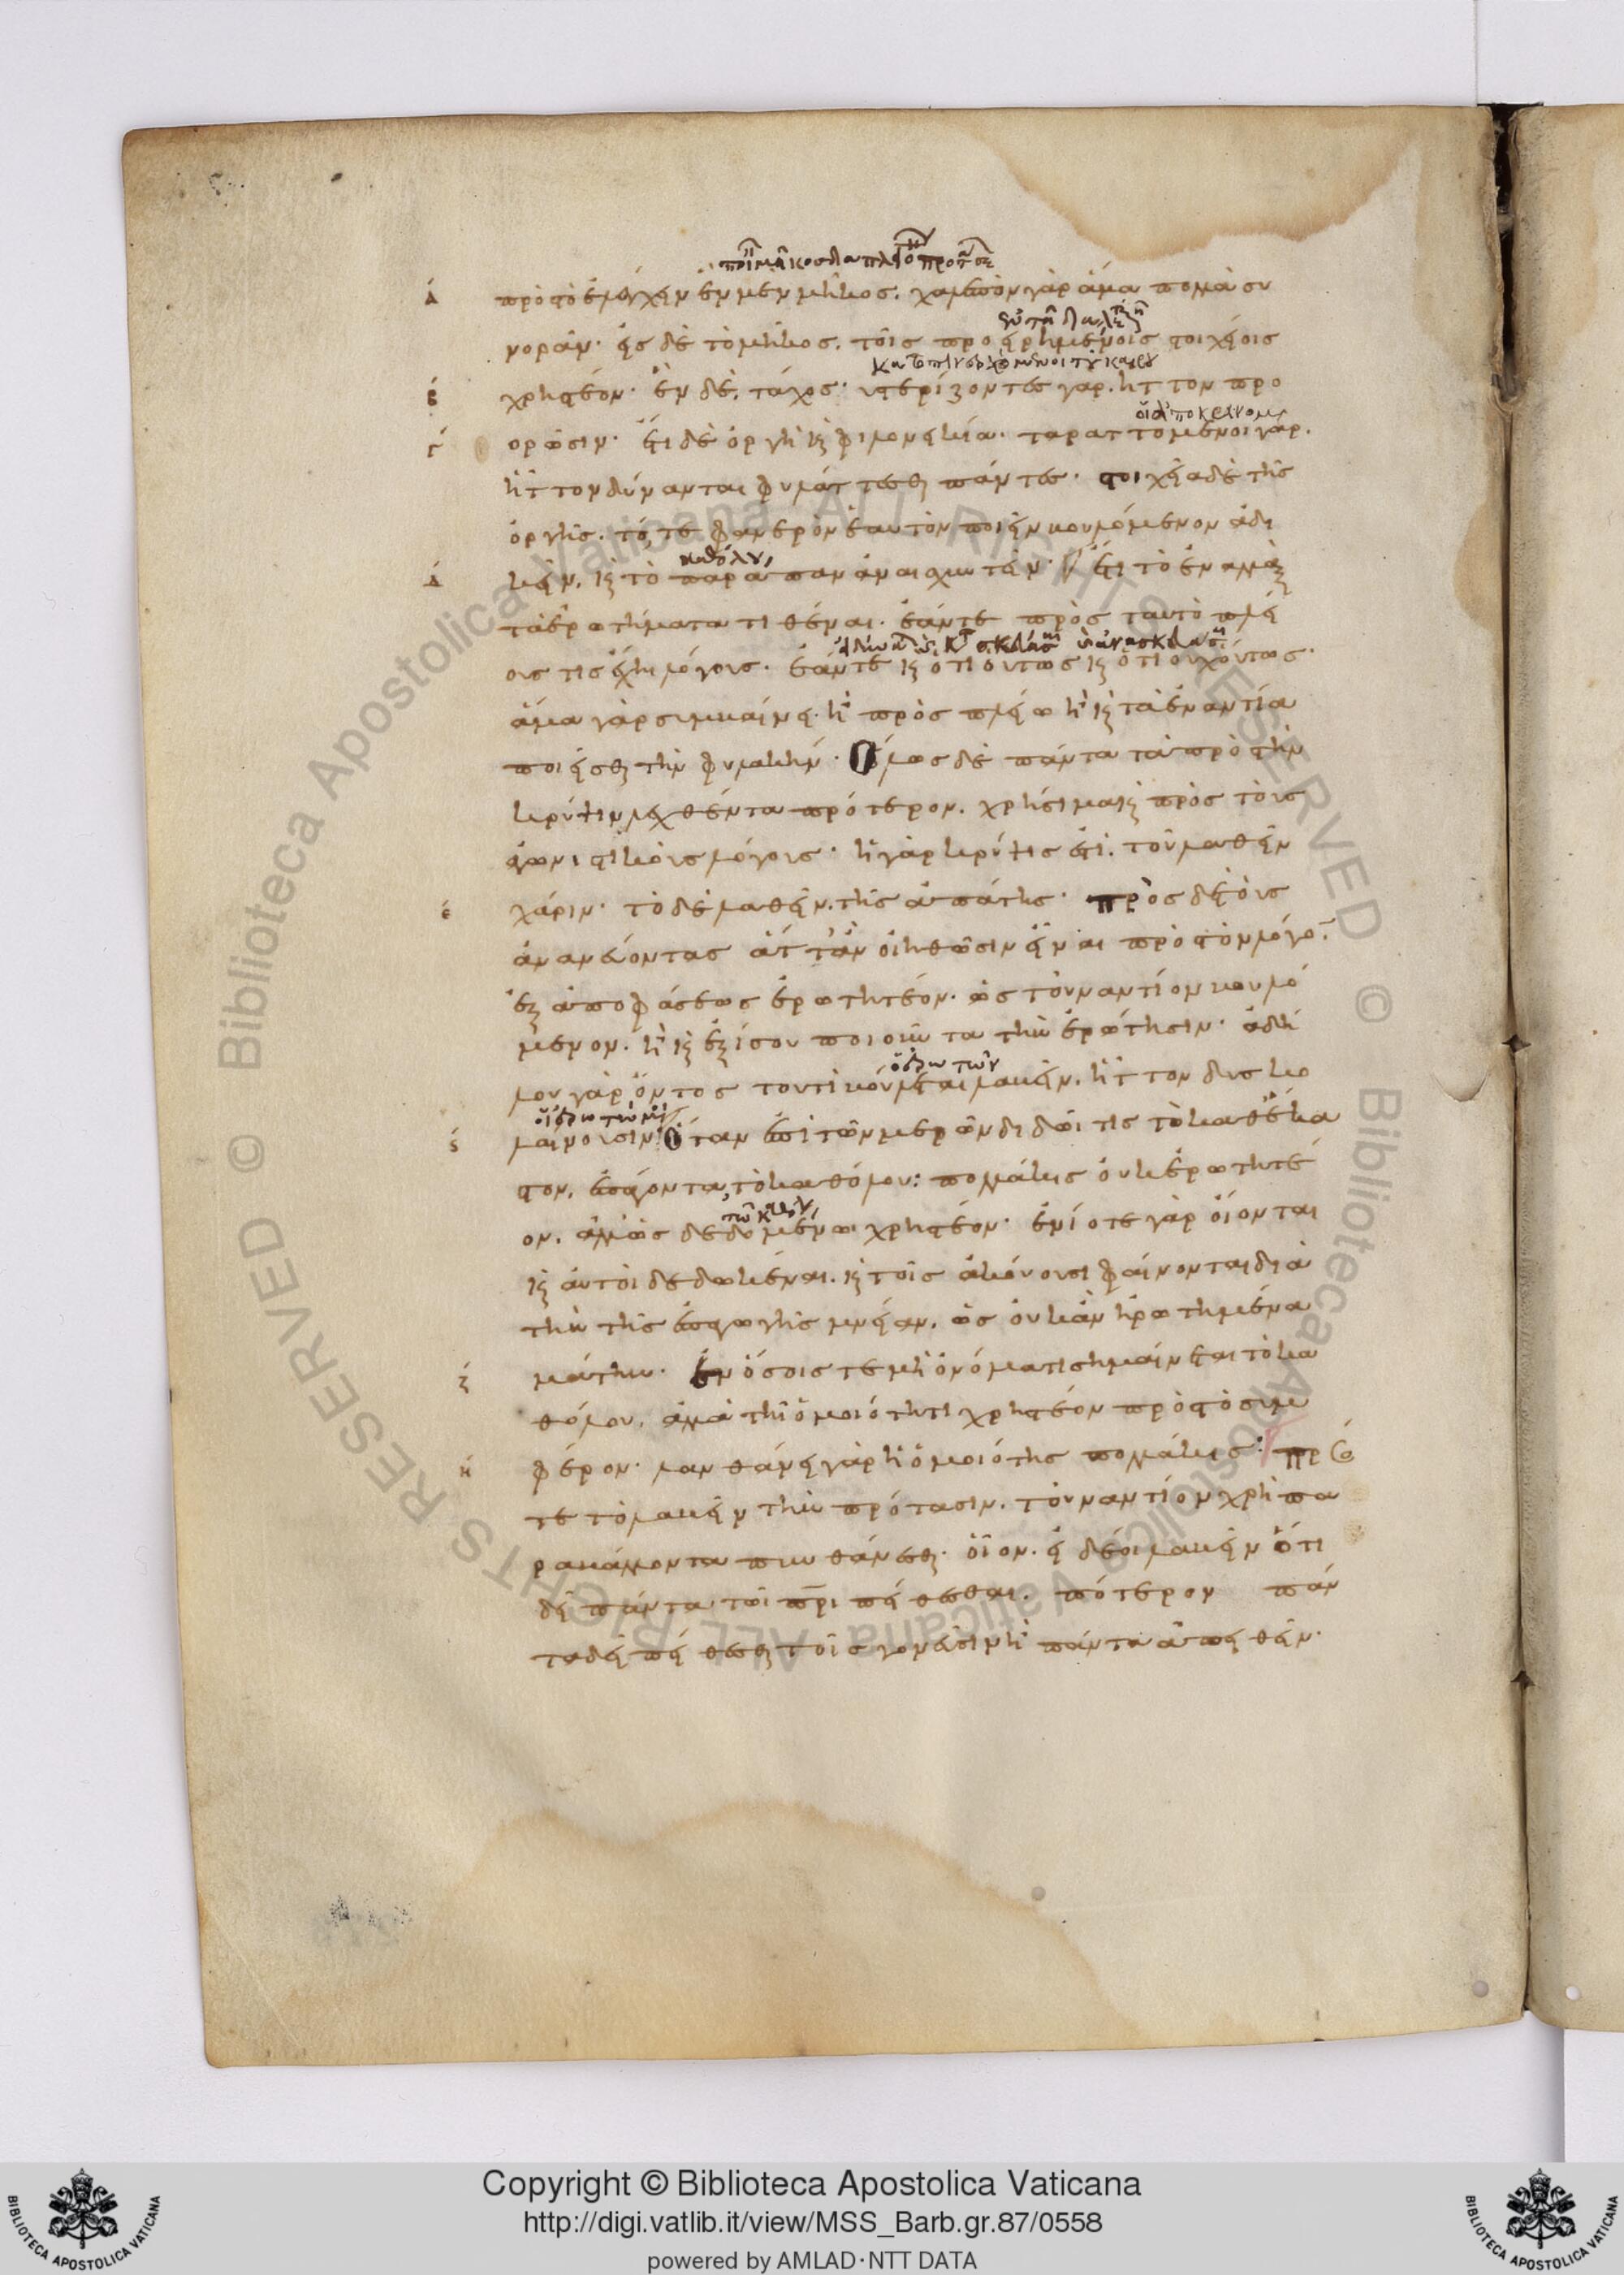 πρὸς τὸ ἐλέγχειν ἓν μὲν μῆκος. χαλεπὸν γὰρ ἅμα πολλὰ συ
νορᾶν· εἰς δὲ τὸ μῆκος. τοῖς προειρημένοις στοιχείοις
χρηστέον· ἓν δὲ, τάχος· ὑστερίζοντες γὰρ. ἧττον προ
ορῶσιν· ἔτι δὲ ὀργὴ καὶ φιλονεικία· ταραττόμενοι γὰρ.
ἧττον δύνανται φυλάττεσθαι πάντες· στοιχεῖα δὲ τῆς
ὀργῆς. τό, τε φανερὸν ἑαυτὸν ποιεῖν βουλόμενον ἀδι
κεῖν, καὶ τὸ παράπαν ἀναισχυντεῖν· ἔτι τὸ ἐναλλὰξ
τὰ ἐρωτήματα τιθέναι. ἐάντε πρὸς ταυτὸ πλεί
ους τις ἔχη λόγους· ἐάντε καὶ ὅτι οὕτως καὶ ὅτι οὐχ οὕτως·
ἅμα γὰρ συμβαίνει. ἢ πρὸς πλείω ἢ καὶ τἀναντία
ποιεῖσθαι τὴν φυλακήν· Ὅλως δὲ πάντα τὰ πρὸς τὴν
κρύψιν λεχθέντα πρότερον. χρήσιμα καὶ πρὸς τοὺς
ἀγωνιστικοὺς λόγους· ἡ γὰρ κρύψις ἐστὶ. τοῦ λαθεῖν
χάριν· τὸ δὲ λαθεῖν. τῆς ἀπάτης· πρὸς δὲ τοὺς
ἀνανεύοντας ἅττ' ἂν οἰηθῶσιν εἶναι πρὸς τὸν λόγον.
ἐξ ἀποφάσεως ἐρωτητέον. ὡς τοὐναντίον βουλό
μενον. ἢ καὶ ἐξίσου ποιοῦντα τὴν ἐρώτησιν· ἀδή
λου γὰρ ὄντος τοῦ τί βούλεται λαβεῖν. ἧττον δυσκο
λαίνουσιν· Ὅταν ἐπὶ τῶν μερῶν διδῶι τις τὸ καθ' ἕκα
στον. ἐπάγοντα, τὸ καθόλου· πολλάκις οὐκ ἐρωτητέ
ον. ἀλλ' ὡς δεδομένωι χρηστέον· ἐνίοτε γὰρ οἴονται
καὶ αὐτοὶ δεδωκέναι. καὶ τοῖς ἀκούουσι φαίνονται διὰ
τὴν τῆς ἐπαγωγῆς μνείαν. ὡς οὐκ ἂν ἠρωτημένα
μάτην· ἐν ὅσοις τε μὴ ὀνόματι σημαίνεται τὸ κα
θόλου. ἀλλὰ τῆ ὁμοιότητι χρηστέον πρὸς τὸ συμ
φέρον· λανθάνει γὰρ ἡ ὁμοιότης πολλάκις· πρός
τε τὸ λαβεῖν τὴν πρότασιν. τοὐναντίον χρὴ πα
ραβάλλοντα πυνθάνεσθαι. οἷον. εἰ δέοι λαβεῖν ὅτι
δεῖ πάντα τῶι πρι πείθεσθαι. πότερον πάν
τα δεῖ πείθεσθαι τοῖς γονεῦσιν ἢ πάντα ἀπειθεῖν·
Copyright © Biblioteca Apostolica Vaticana
http://digi.vatlib.it/view/MSS_Barb.gr.87/0558
powered by AMLAD·NTT DATA